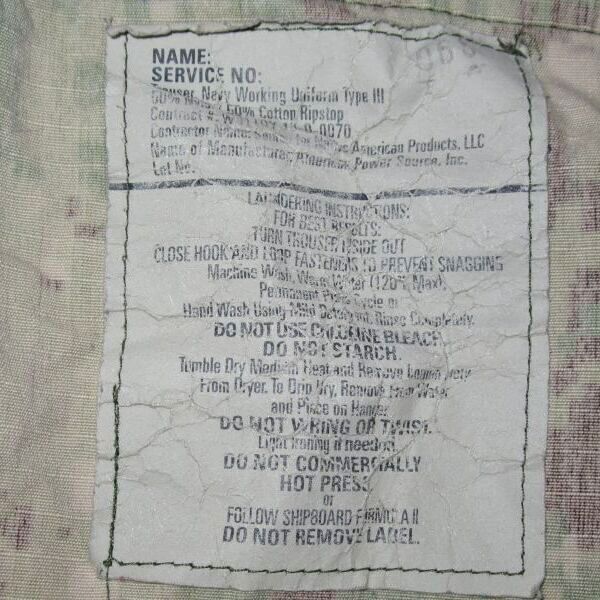 NAME:
SERVICE NO:
Trouser, Navy Working Uniform Type III
50% 50% Cotton Ripstop
Contract #
Contractor Name: American Products, LLC
Name of Manufacturer American Power Source, Inc.
Lot No.
LAUNDERING INSTRUCTIONS:
FOR BEST RESULTS:
TURN TROUSER INSIDE OUT
CLOSE HOOK AND LOOP FASTENERS TO PREVENT SNAGGING
Machine Wash, Warm Water (120°F, Max),
Permanent Press Cycle or
Hand Wash Using Mild Detergent, Rinse Completely.
DO NOT USE CHLORINE BLEACH.
DO NOT STARCH.
Tumble Dry Medium Heat and Remove
From Dryer. To Drip Dry, Remove From Water
and Place on Hanger.
DO NOT WRING OR TWIST.
Light Ironing if needed.
DO NOT COMMERCIALLY
HOT PRESS
or
FOLLOW SHIPBOARD FORMULA II
DO NOT REMOVE LABEL.